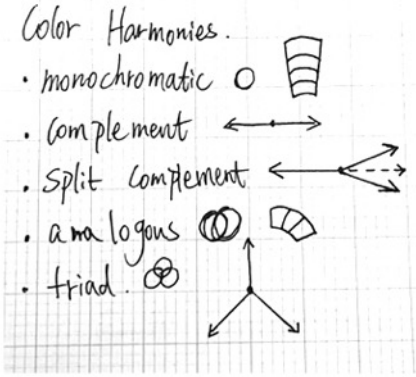 Color Harmonies.
· monochromatic
· complement
· split complement
· analogous
· triad.